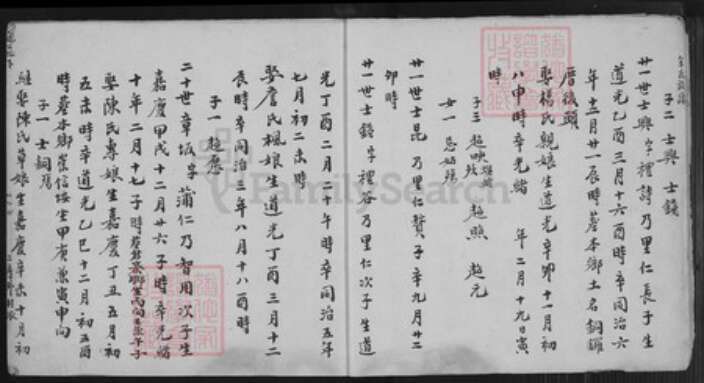 子二 士興 士錢
廿一世士興字禮詩乃里仁長子生
道光乙酉三月十六酉時卒同治六
年十二月廿一辰時葬本鄉土名銅鑼
唇後頭
娶楊氏親娘生道光辛卯十一月初
八申時卒光緒 年二月十九日寅
時
子三 趙映 趙照 趙元
女一
廿一世士昆乃里仁贅子辛九月廿二
卯時
廿一世士錢字禮容乃里仁次子生道
光丁酉二月二十午時卒同治五年
七月初二未時
娶詹氏楓娘生道光丁酉三月十二
辰時卒同治三年八月十八酉時
子一 趙應
二十世章坂字蒲仁乃智用次子生
嘉慶甲戌十二月廿六子時卒光緒
十年二月十七子時
娶陳氏專娘生嘉慶丁丑五月初
五未時卒道光乙巳十二月初五酉
時葬本鄉崇信坂坐甲庚兼寅申向
子一 士銅
繼娶陳氏草娘生嘉慶辛未十月初
FamilySearch